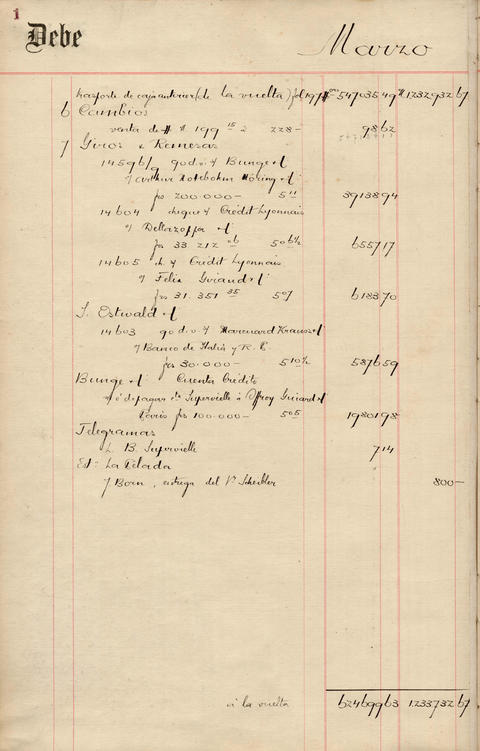 1
Debe
Marzo
trasporte de caja anterior (de la vuelta) fol 197 $ oro 5470354 9 1232932 67
6 Cambios
venta de # 199 15 a 228- 9862
7 Giros & Remesas
14596/9 90 d.v. y Bunge
o/ Arthur Nottebohm Höring
frs 200.000- 5 11 3913894
14604 cheque y Crédit Lyonnais
o/ Dellazoppa
frs 33 212 06 506½ 655717
14605 ch. y Crédit Lyonnais
o/ Felix Guiand
frs 31.351 35 507 618370
S. Estwald
14603 90 d.v. y Marcuard Krauss
o/ Banco de Italia y R. P.
frs 30.000- 5 10½ 587659
Bunge Cuenta Crédito
a Offroy Guiard
París frs 100.000- 5 05 1980198
Telegramas
L. B. Supervielle 714
Est: La Pelada
J Born, entrega del Vr Scheibler 800-
a la vuelta 6246993 1233732 67